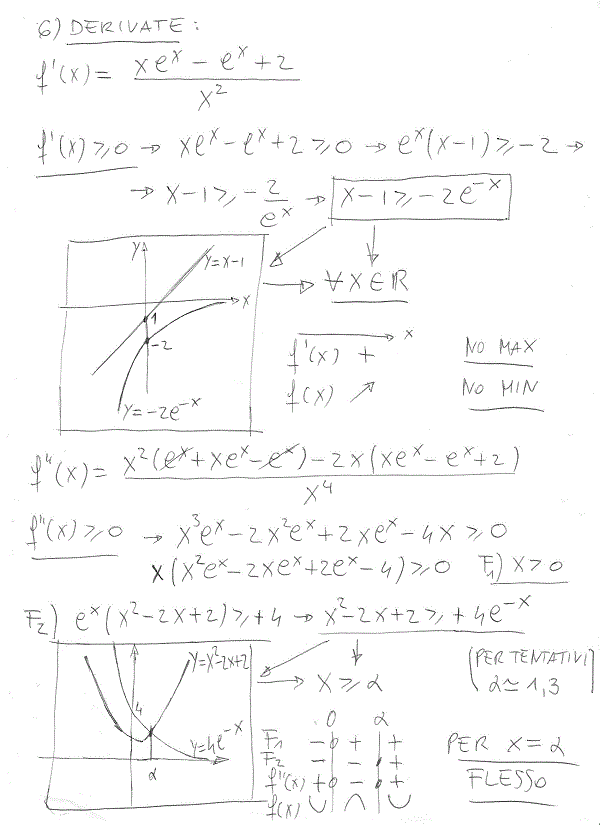 6) DERIVATE:
f'(x) = (xe^x - e^x + 2) / x^2
f'(x) ≥ 0 → xe^x - e^x + 2 ≥ 0 → e^x(x-1) ≥ -2 →
→ x-1 ≥ -2/e^x → x-1 ≥ -2e^-x
y
y = x-1
x
1
-2
y = -2e^-x
∀ x ∈ R
x
f'(x) +
f(x) ↗
NO MAX
NO MIN
f''(x) = (x^2(e^x + xe^x - e^x) - 2x(xe^x - e^x + 2)) / x^4
f''(x) ≥ 0 → x^3e^x - 2x^2e^x + 2xe^x - 4x ≥ 0
x(x^2e^x - 2xe^x + 2e^x - 4) ≥ 0 F1) x > 0
F2) e^x(x^2 - 2x + 2) ≥ +4 → x^2 - 2x + 2 ≥ +4e^-x
y = x^2-2x+2
4
y = 4e^-x
α
→ x ≥ α
(PER TENTATIVI)
α ≃ 1,3
0 α
F1 - + +
F2 - - +
f''(x) + - +
f(x) ∪ ∩ ∪
PER x = α
FLESSO